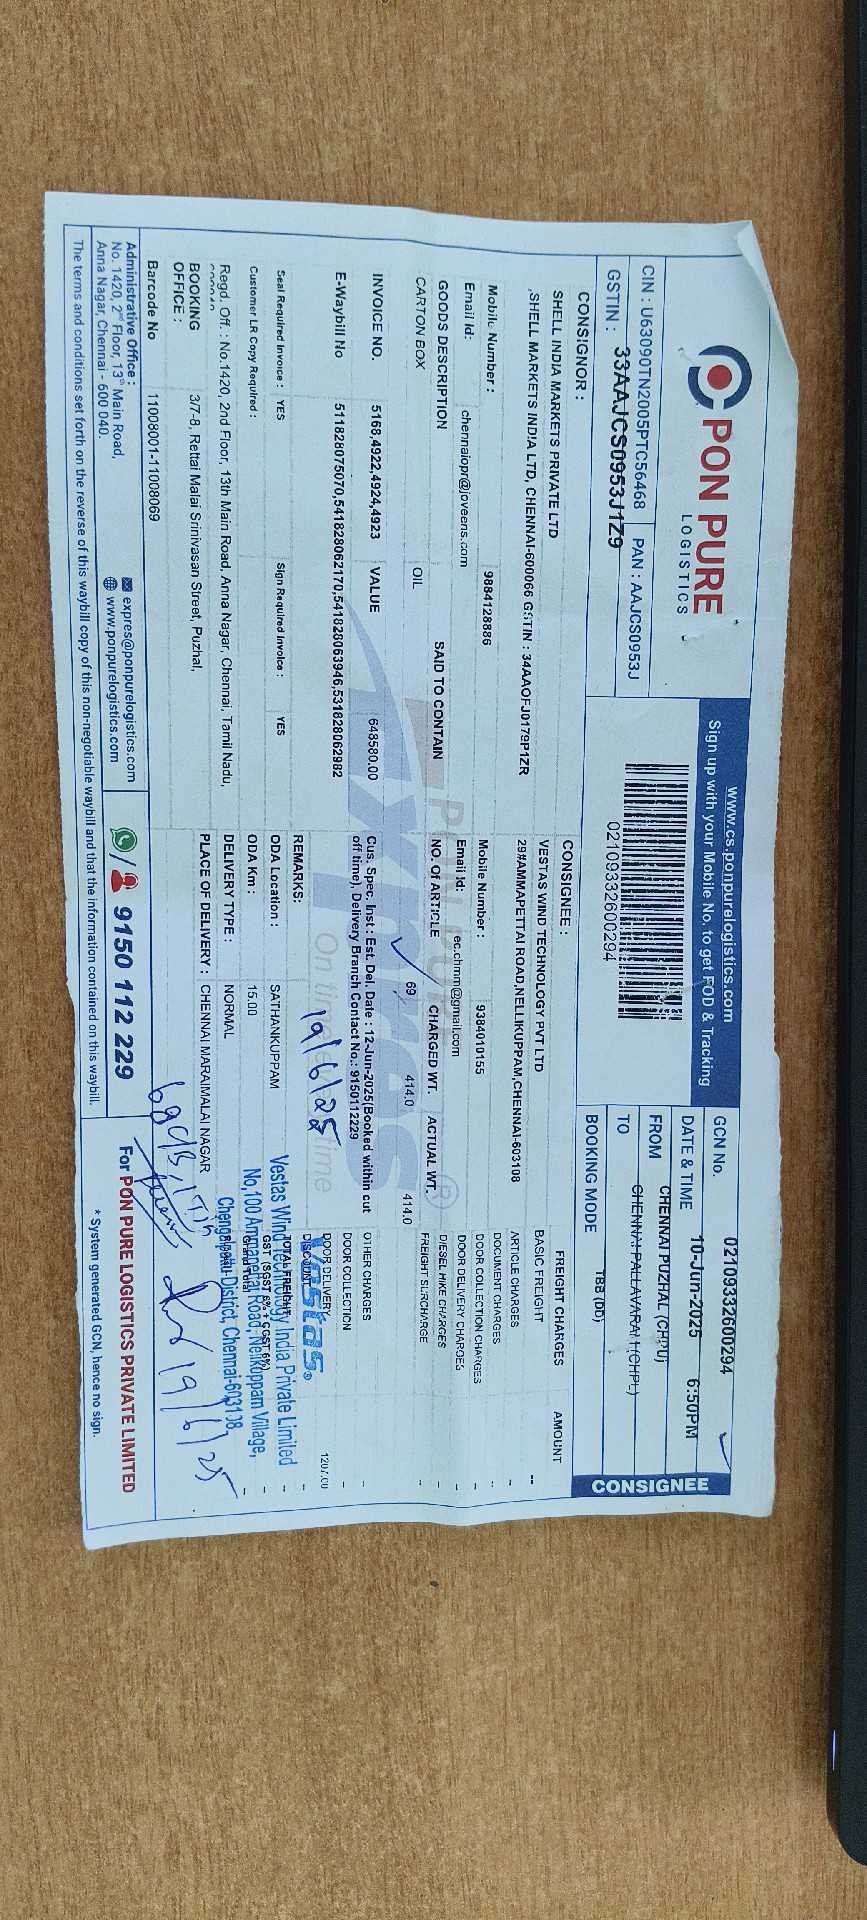 PON PURE
LOGISTICS
CIN : U63090TN2005PTC56468
PAN : AAJCS0953J
GSTIN : 33AAJCS0953J1Z9
www.cs.ponpurelogistics.com
Sign up with your Mobile No. to get FOD & Tracking
02109332600294
GCN No. 02109332600294
DATE & TIME 10-Jun-2025 6:50PM
FROM CHENNAI PUZHAL (CHPU)
TO CHENNAI PALLAVARAM (CHPL)
BOOKING MODE TBB (DD)
CONSIGNEE
CONSIGNOR :
SHELL INDIA MARKETS PRIVATE LTD
,SHELL MARKETS INDIA LTD, CHENNAI-600066 GSTIN : 34AAOFJ0179P1ZR
Mobile Number : 9884128886
Email Id: chennaiopr@joveens.com
CONSIGNEE :
VESTAS WIND TECHNOLOGY PVT LTD
29#AMMAPETTAI ROAD,NELLIKUPPAM,CHENNAI-603108
Mobile Number : 9384010155
Email Id: ec.chmm@gmail.com
GOODS DESCRIPTION SAID TO CONTAIN NO. Of ARTICLE CHARGED WT. ACTUAL WT.
CARTON BOX OIL 69 414.0 414.0
INVOICE NO. 5168,4922,4924,4923 VALUE 648580.00
E-Waybill No 511828075070,541828062170,541828063946,531828062982
Cus. Spec. Inst.: Est. Del. Date : 12-Jun-2025(Booked within cut
off time), Delivery Branch Contact No.: 9150112229
Seal Required Invoice : YES Sign Required Invoice : YES
Customer LR Copy Required :
REMARKS:
19/6/25
ODA Location : SATHANKUPPAM
ODA Km : 15.00
DELIVERY TYPE : NORMAL
PLACE OF DELIVERY : CHENNAI MARAIMALAI NAGAR
Regd. Off. : No.1420, 2nd Floor, 13th Main Road, Anna Nagar, Chennai, Tamil Nadu,
BOOKING OFFICE : 3/7-8, Rettai Malai Srinivasan Street, Puzhal,
Barcode No 11008001-11008069
FREIGHT CHARGES AMOUNT
BASIC FREIGHT --
ARTICLE CHARGES -
DOCUMENT CHARGES -
DOOR COLLECTION CHARGES -
DOOR DELIVERY CHARGES -
DIESEL HIKE CHARGES -
FREIGHT SURCHARGE -
OTHER CHARGES -
DOOR COLLECTION -
DOOR DELIVERY 1207.00
DISCOUNT -
TOTAL FREIGHT -
GST (SGST 6% + CGST 6%) -
Grand Total -
Vestas®
Vestas Wind Technology India Private Limited
No,100 Ammapettai Road, Nellikuppam Village,
Chengalpattu-District, Chennai-603108.
19/6/25
Pon Pure
Expres®
On time
time
Administrative Office :
No. 1420, 2nd Floor, 13th Main Road,
Anna Nagar, Chennai - 600 040.
expres@ponpurelogistics.com
www.ponpurelogistics.com
9150 112 229
For PON PURE LOGISTICS PRIVATE LIMITED
The terms and conditions set forth on the reverse of this waybill copy of this non-negotiable waybill and that the information contained on this waybill.
* System generated GCN, hence no sign.